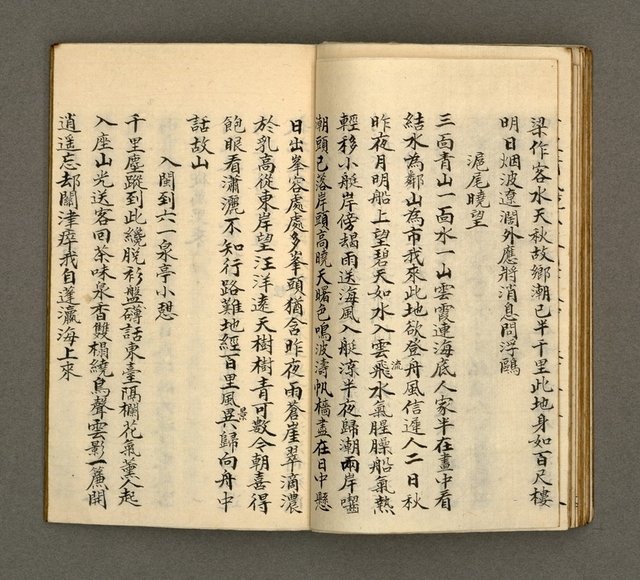 梁作客水天秋故鄉潮已半千里此地身如百尺樓
明日烟波遼濶外應將消息問浮鷗
滬尾曉望
三面青山一面水一山雲霞連海底人家半在畫中看
結水為鄰山為市我來此地欲登舟風信遲人二日秋
昨夜月明船上望碧天如水入雲飛水氣腥臊船氣熱
流
輕移小艇岸傍𣈱雨送海風入艇涼半夜歸潮兩岸囓
潮頭已落岸頭高曉天曙色鳴波濤帆檣盡在日中懸
日出峯容處處多峯頭猶含昨夜雨蒼崖翠滴濃
於乳高從東岸望汪洋遠天樹樹青可數今朝喜得
飽眼看瀟灑不知行路難地經百里風異歸向舟中
景
話故山
入閩到六一泉亭小憩
千里塵蹤到此纔脫衫盤礴話東臺隔欄花氣薰人起
入座山光送客回茶味泉香雙榻繞鳥聲雲影一簾開
逍遥忘却關津瘁我自蓬瀛海上來